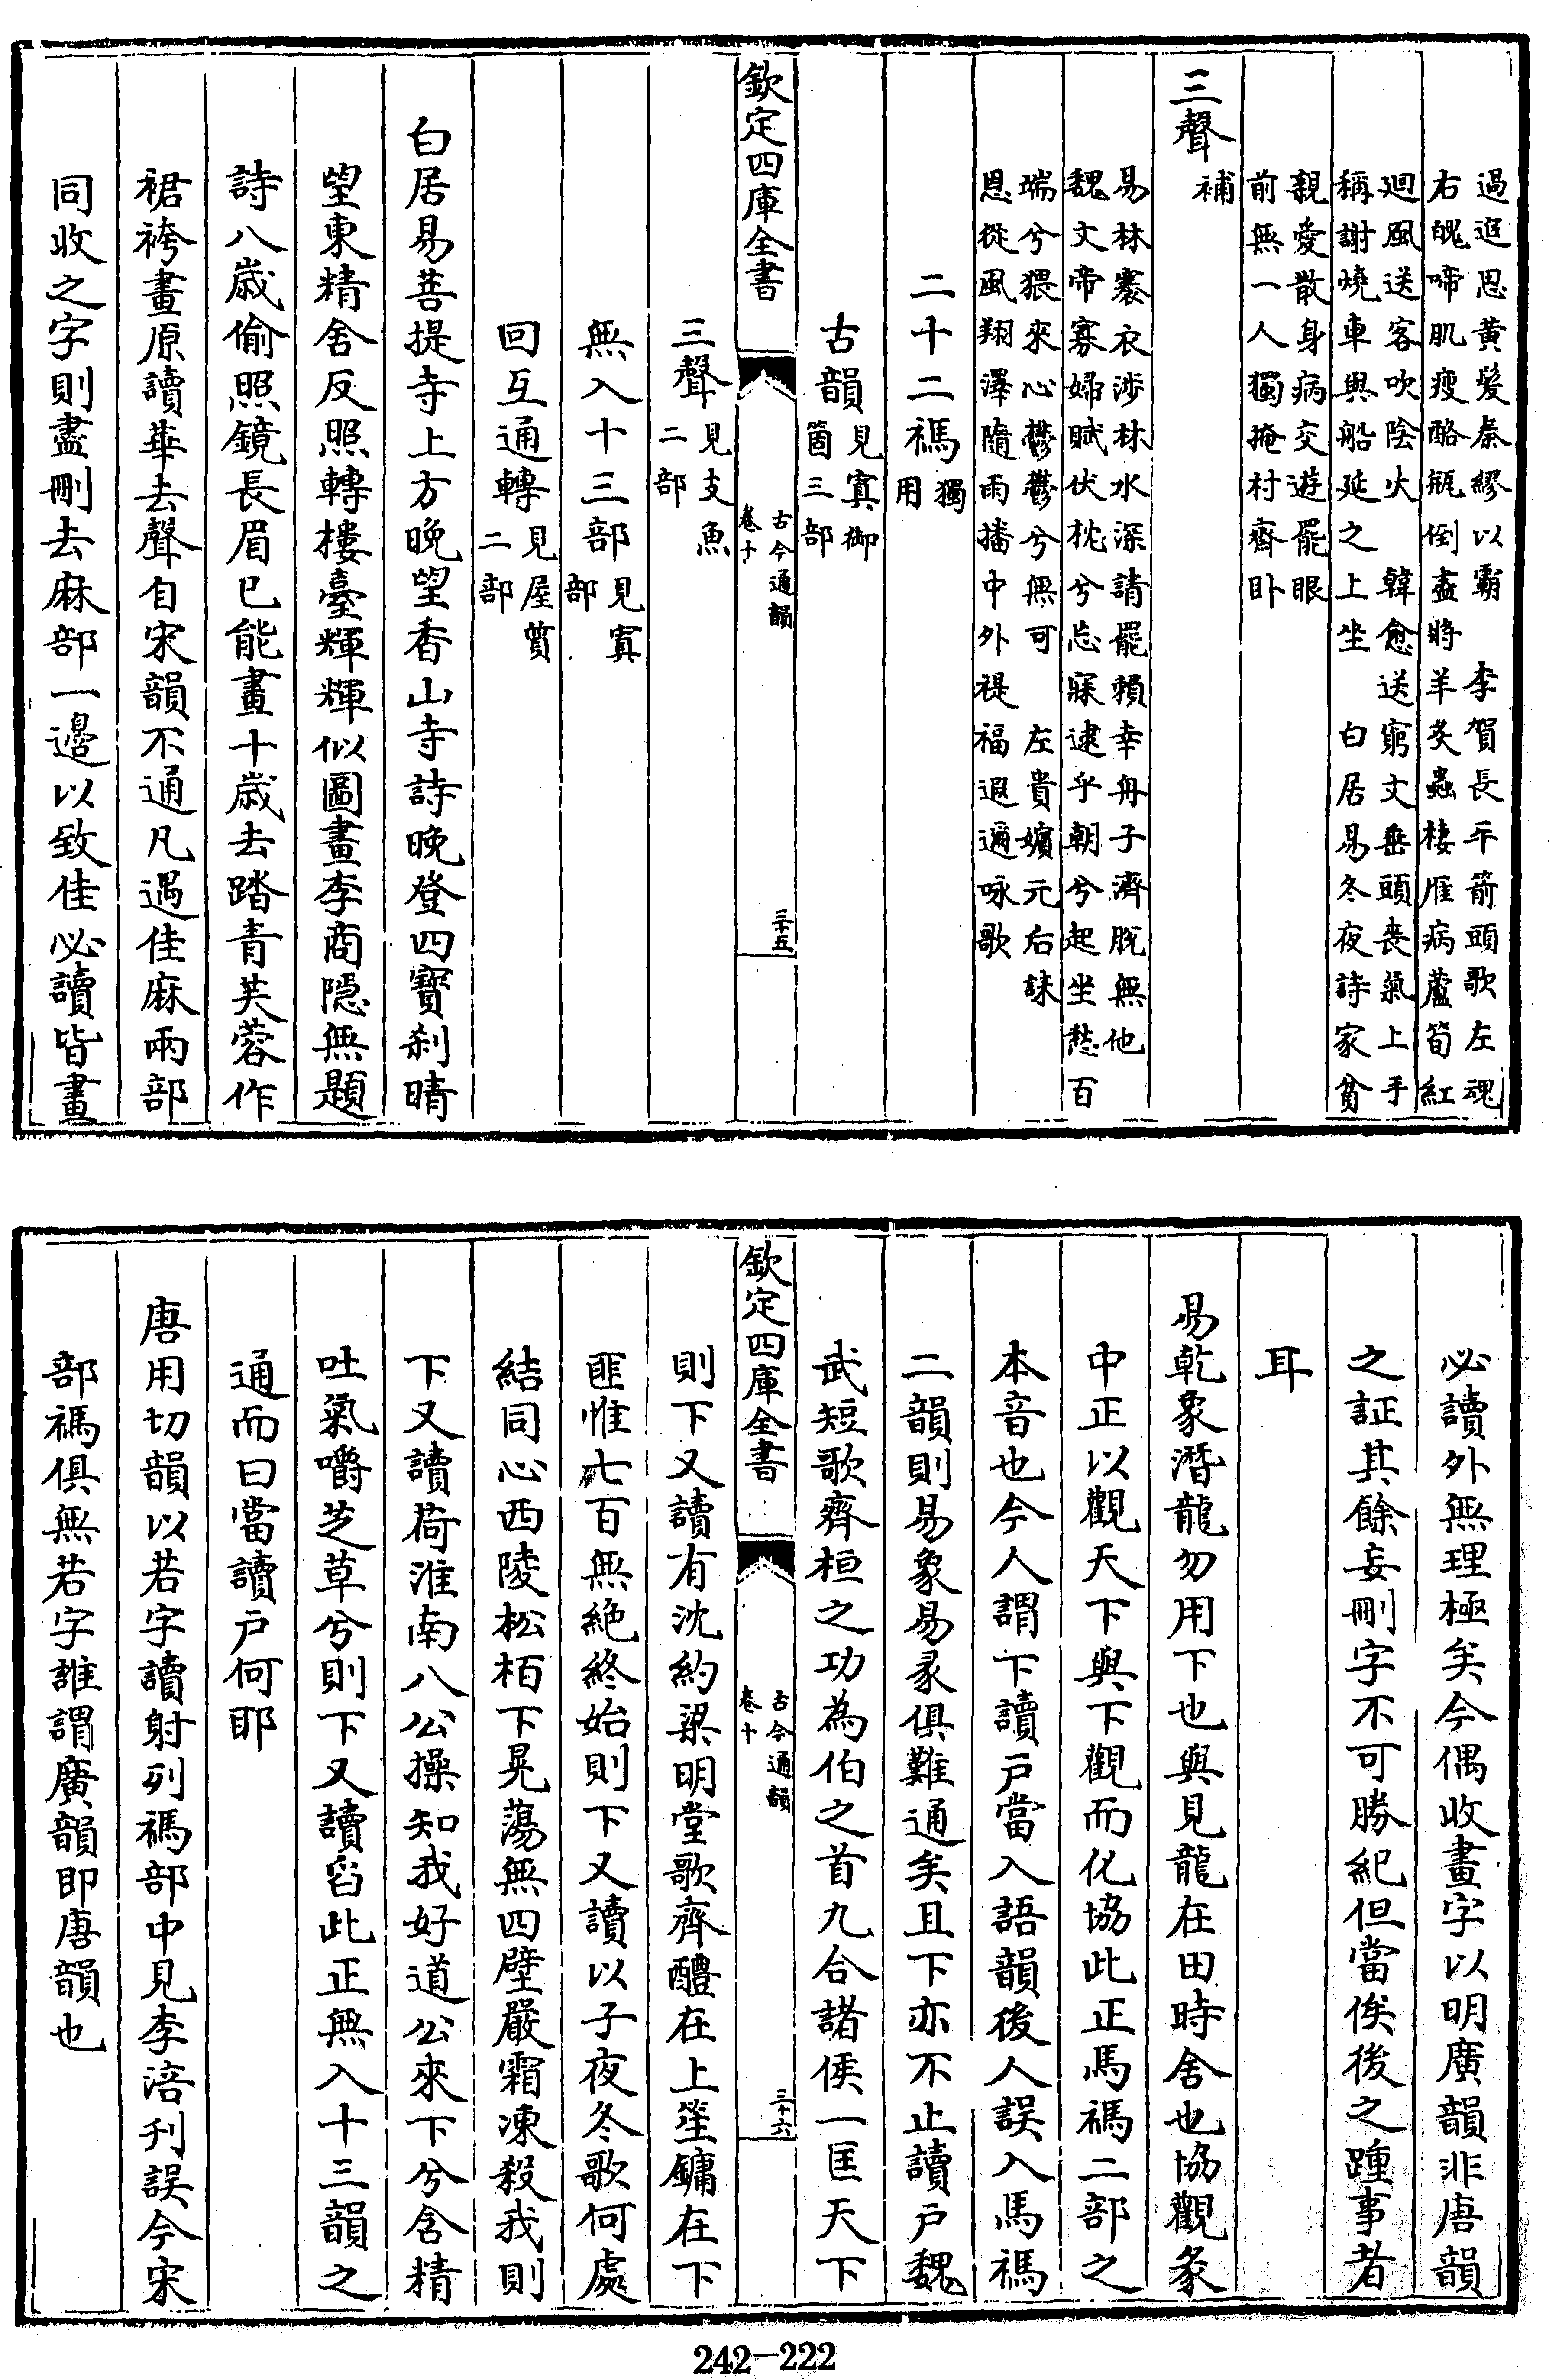 過遐思黃髮秦繆以霸　李賀長平箭頭歌左魂
右魄啼肌瘦酪瓶倒盡將羊炙蟲棲雁病蘆筍紅
廻風送客吹陰火　韓愈送窮文垂頭喪氣上手
稱謝燒車與船延之上坐　白居易冬夜詩家貧
親愛散身病交遊罷眼
前無一人獨掩村齋卧
三聲補
易林褰衣涉林水深請罷賴幸舟子濟脫無他
魏文帝寡婦賦伏枕兮忘寐逮乎朝兮起坐愁百
瑞兮猥來心鬱鬱兮無可　左貴嬪元后誄
恩從風翔澤隨雨播中外禔福遐邇咏歌
二十二禡獨用
古韻見寘御箇三部
欽定四庫全書
古今通韻
卷十
三十五
三聲見支魚二部
無入十三部見寘部
回互通轉見屋質二部
白居易菩提寺上方晚望香山寺詩晚登四寶刹晴
望東精舍反照轉樓臺輝輝似圖畫李商隱無題
詩八歲偷照鏡長眉已能畫十歲去踏青芙蓉作
裙袴畫原讀華去聲自宋韻不通凡遇佳麻兩部
同收之字則盡刪去麻部一邊以致佳必讀皆畫
必讀外無理極矣今偶收畫字以明廣韻非唐韻
之証其餘妄刪字不可勝紀但當俟後之踵事者
耳
易乾象潛龍勿用下也與見龍在田時舍也協觀彖
中正以觀天下與下觀而化協此正馬禡二部之
本音也今人謂下讀戶當入語韻後人誤入馬禡
二韻則易象易彖俱難通矣且下亦不止讀戶魏
武短歌齊桓之功為伯之首九合諸侯一匡天下
欽定四庫全書
古今通韻
卷十
三十六
則下又讀有沈約梁明堂歌齊醴在上笙鏞在下
匪惟七百無絕終始則下又讀以子夜冬歌何處
結同心西陵松栢下晃蕩無四壁嚴霜凍殺我則
下又讀荷淮南八公操知我好道公來下兮含精
吐氣嚼芝草兮則下又讀舀此正無入十三韻之
通而曰當讀戶何耶
唐用切韻以若字讀射列禡部中見李涪刋誤今宋
部禡俱無若字誰謂廣韻即唐韻也
242-222